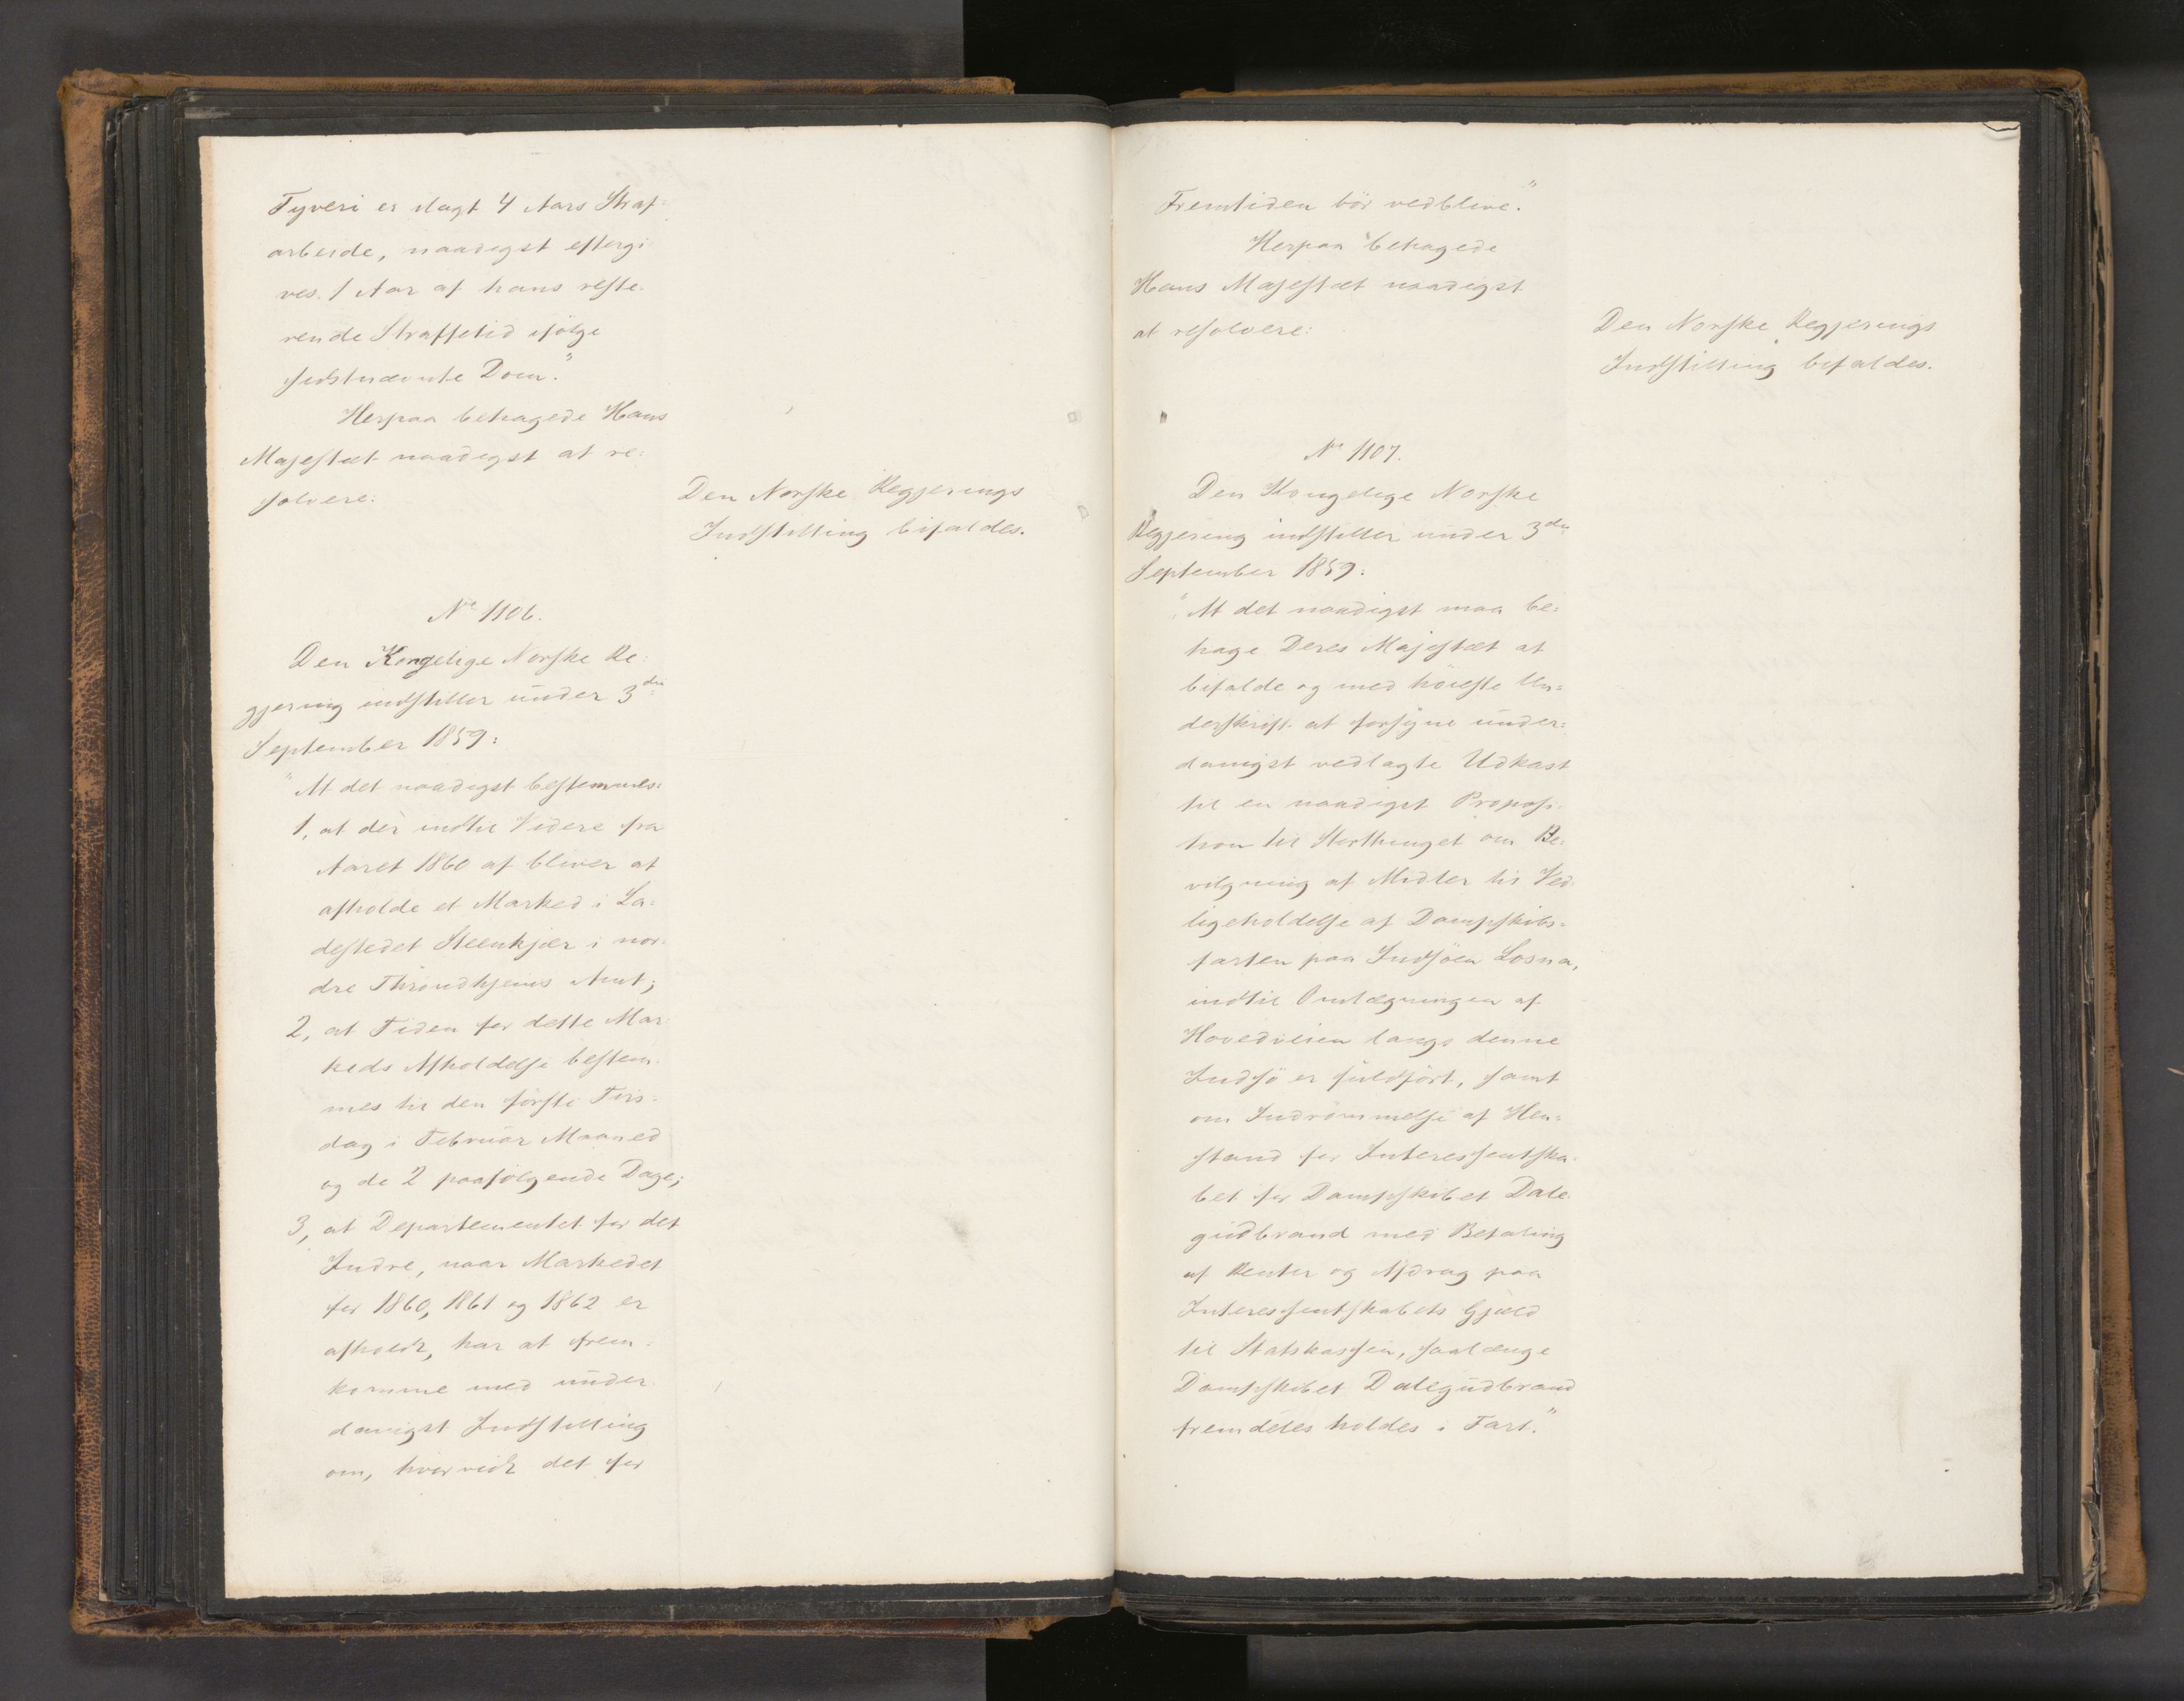 Tyveri er ilagt 4 Aars Straf-
arbeide, naadigst eftergi
ves 1 Aar af hans reste-
rende Straffetid ifølge
sidstnævnte Dom."
Herpaa behagede Hans
Majestæt naadigst at re-
solvere:
Den Norske Regjerings
Indstilling bifaldes.
No 1106.
Den Kongelige Norske Re-
gjering indstiller under 3die
September 1859:
"At det naadigst bestemmes:
1, at der indtil Videre fra
Aaret 1860 af bliver at
afholde et Marked i La-
destedet Steenkjær i nor-
dre Throndhjems Amt;
2, at Tiden for dette Mar-
keds Afholdelse bestem-
mes til den første Tirs-
dag i Februar Maaned
og de 2 paafølgende Dage;
3, at Departementet for det
Indre, naar Markedet
for 1860, 1861 og 1862 er
afholdt, har at frem-
komme med under-
danigst Indstilling
om, hvorvidt det for
Fremtiden bör vedblive."
Herpaa behagede
Hans Majestæt naadigst
at resolvere:
Den Norske Regjerings
Indstilling bifaldes.
No 1107.
Den Kongelige Norske
Regjering indstiller under 3die
September 1859:
"At det naadigst maa be-
hage Deres Majestæt at
bifalde og med höieste Un-
derskrift at forsyne under-
danigst vedlagte Udkast
til en naadigst Proposi-
tion til Storthinget om Be-
vilgning af Midler til Ved-
ligeholdelse af Dampskibs-
farten paa Indsöen Losna,
indtil Omlægningen af
Hovedveien langs denne
Indsö er fuldfört, samt
om Indrömmelse af Hen-
stand for Interessentska-
bet for Dampskibet Dale-
gudbrand med Betaling
af Renter og Afdrag paa
Interessentskabets Gjæld
til Statskassen, saalænge
Dampskibet Dalegudbrand
fremdeles holdes i Fart."